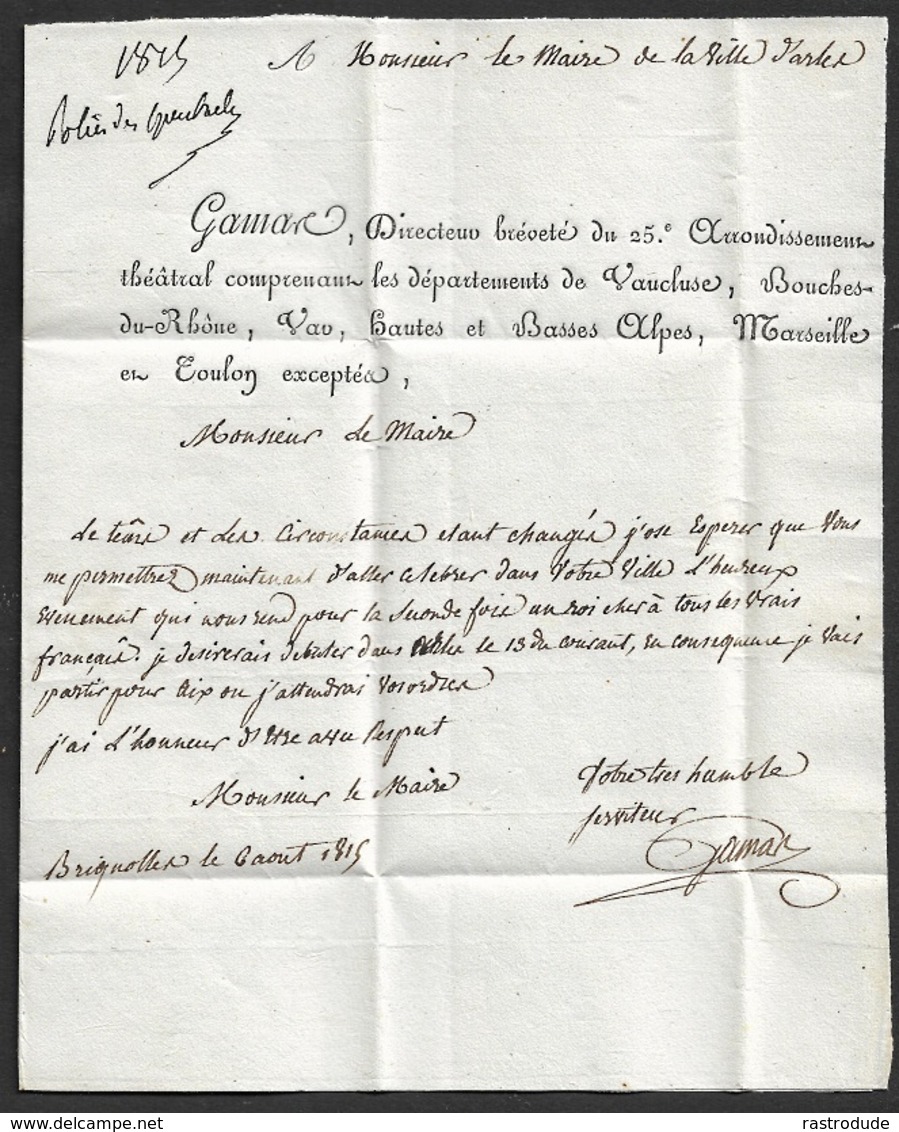 1815
A Monsieur le Maire de la Ville d'arles
Police des Spectacles
Gamas, Directeur bréveté du 25.e Arrondissement
théâtral comprenant les départements de Vaucluse, Bouches-
du-Rhône, Var, Hautes et Basses Alpes, Marseille
et Toulon exceptés,
Monsieur le Maire
Le tems et les Circonstances etant changés j'ose Esperer que Vous
me permettrez maintenant d'aller celebrer dans Votre Ville L'heureux
Evenement qui nous rend pour la seconde fois un roi cher à tous les Vrais
français. je desirerais debuter dans Arles le 13 du courant, en consequence je Vais
partir pour Aix ou j'attendrai Vos ordres
j'ai L'honneur d'Etre avec Respect
Monsieur le Maire
Votre tres humble
serviteur
Gamas
Brignolles le 6 aout 1815
rastrodude